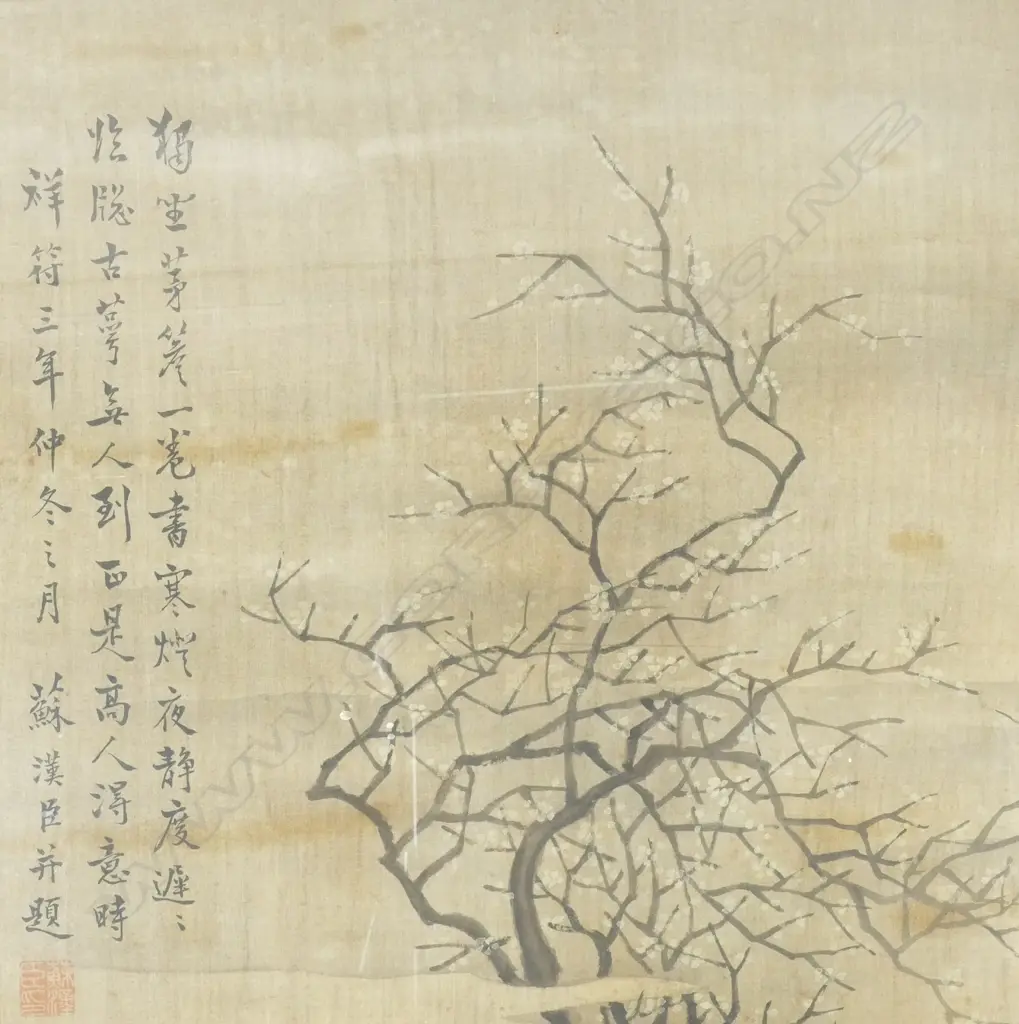 獨坐茅簷一卷書寒燈夜靜度遲〻
臨牕古萼無人到正是高人得意時
祥符三年仲冬之月 蘇漢臣并題